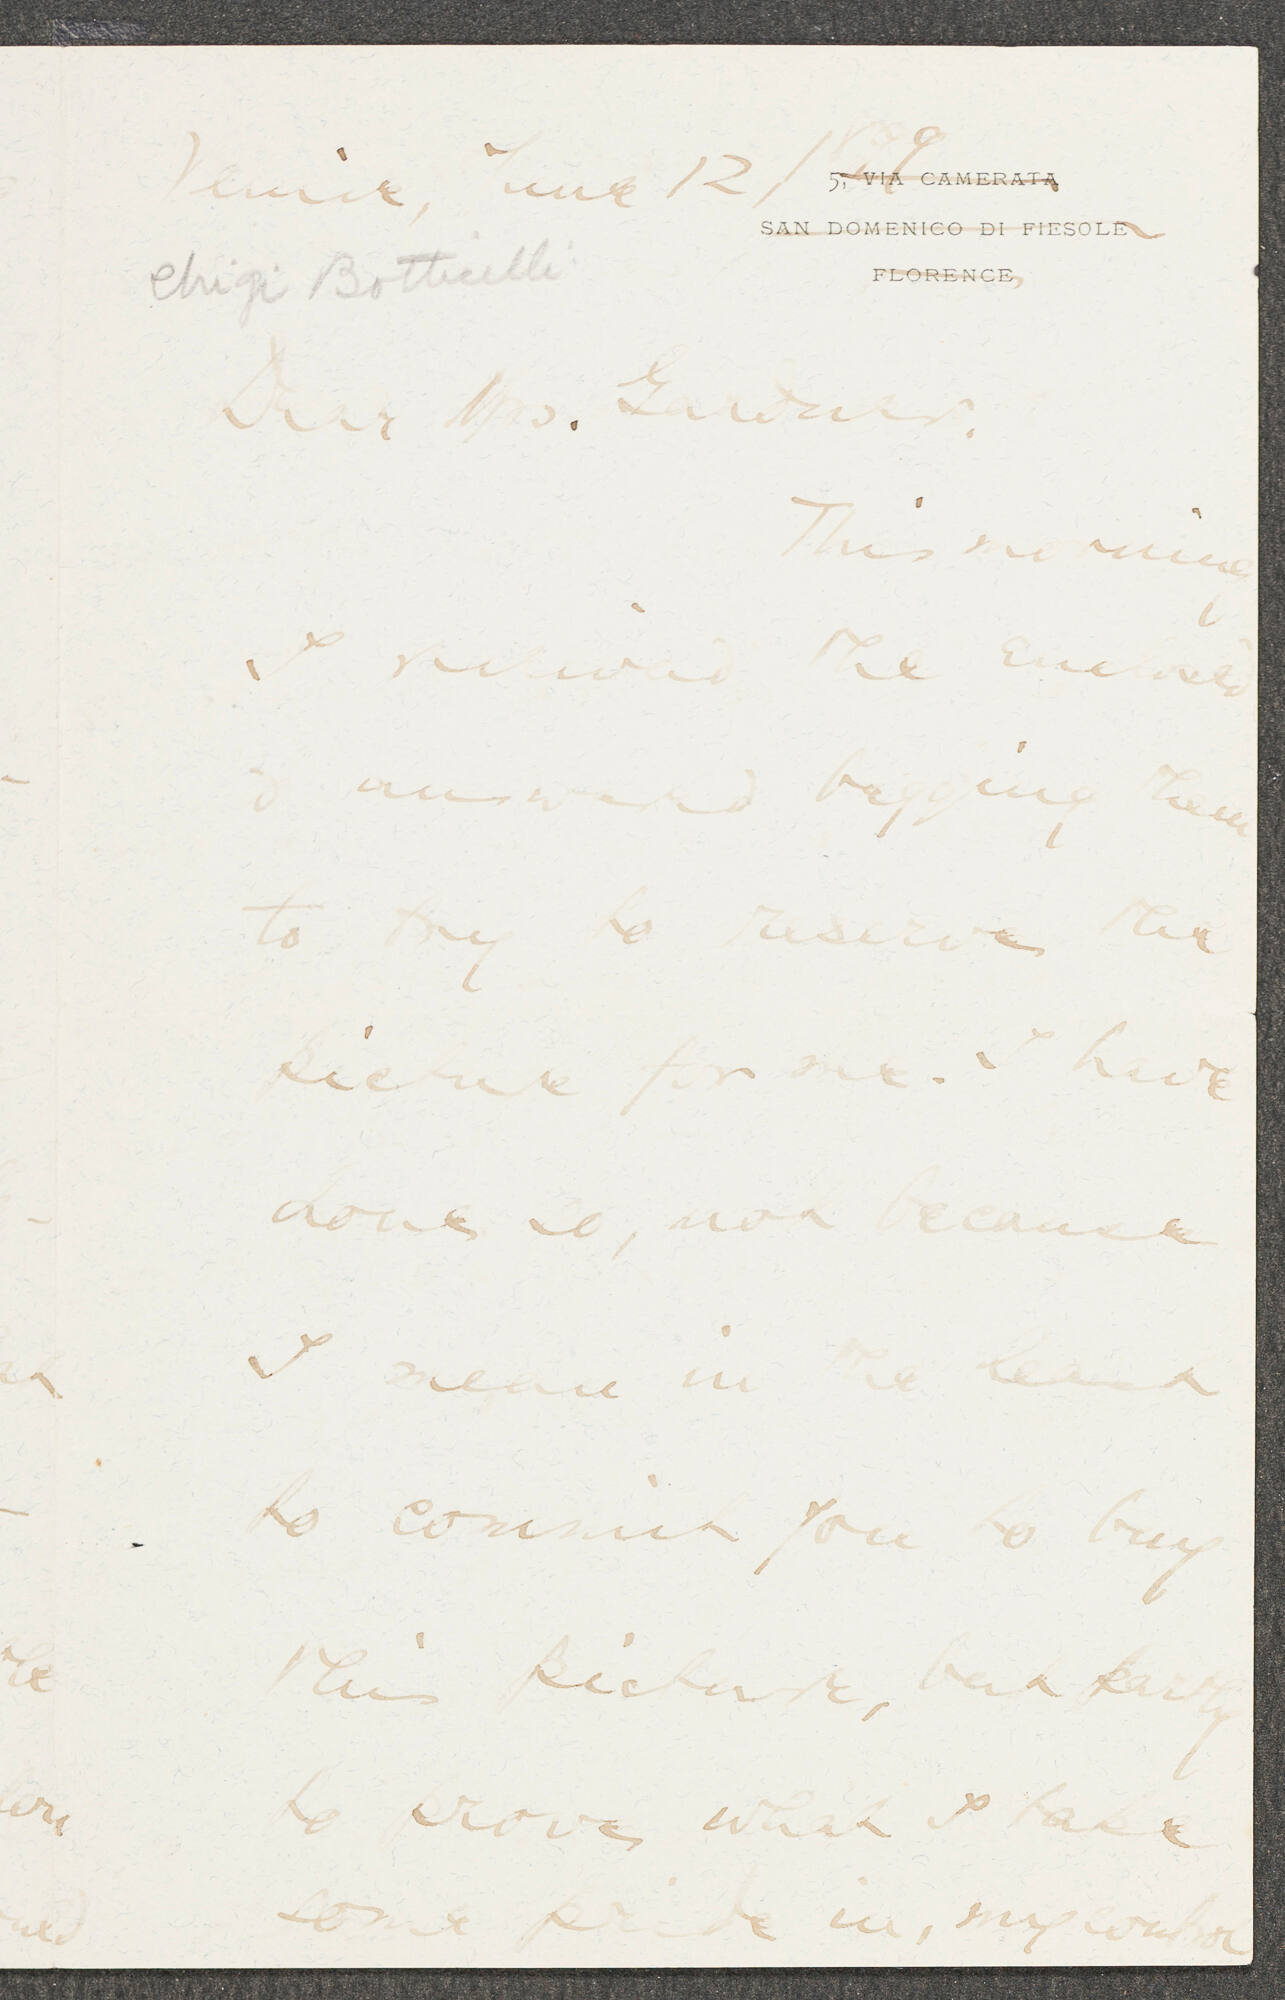 Venice, June 12/1899
5, VIA CAMERATA
SAN DOMENICO DI FIESOLE
FLORENCE
Chigi Botticelli
Dear Mrs. Gardner,
This morning
I received the enclosed
& answered begging them
to try to reserve the
picture for me. I have
done so, not because
I mean in the least
to commit you to buy
this picture, but partly
to prove what I take
some pride in, my control